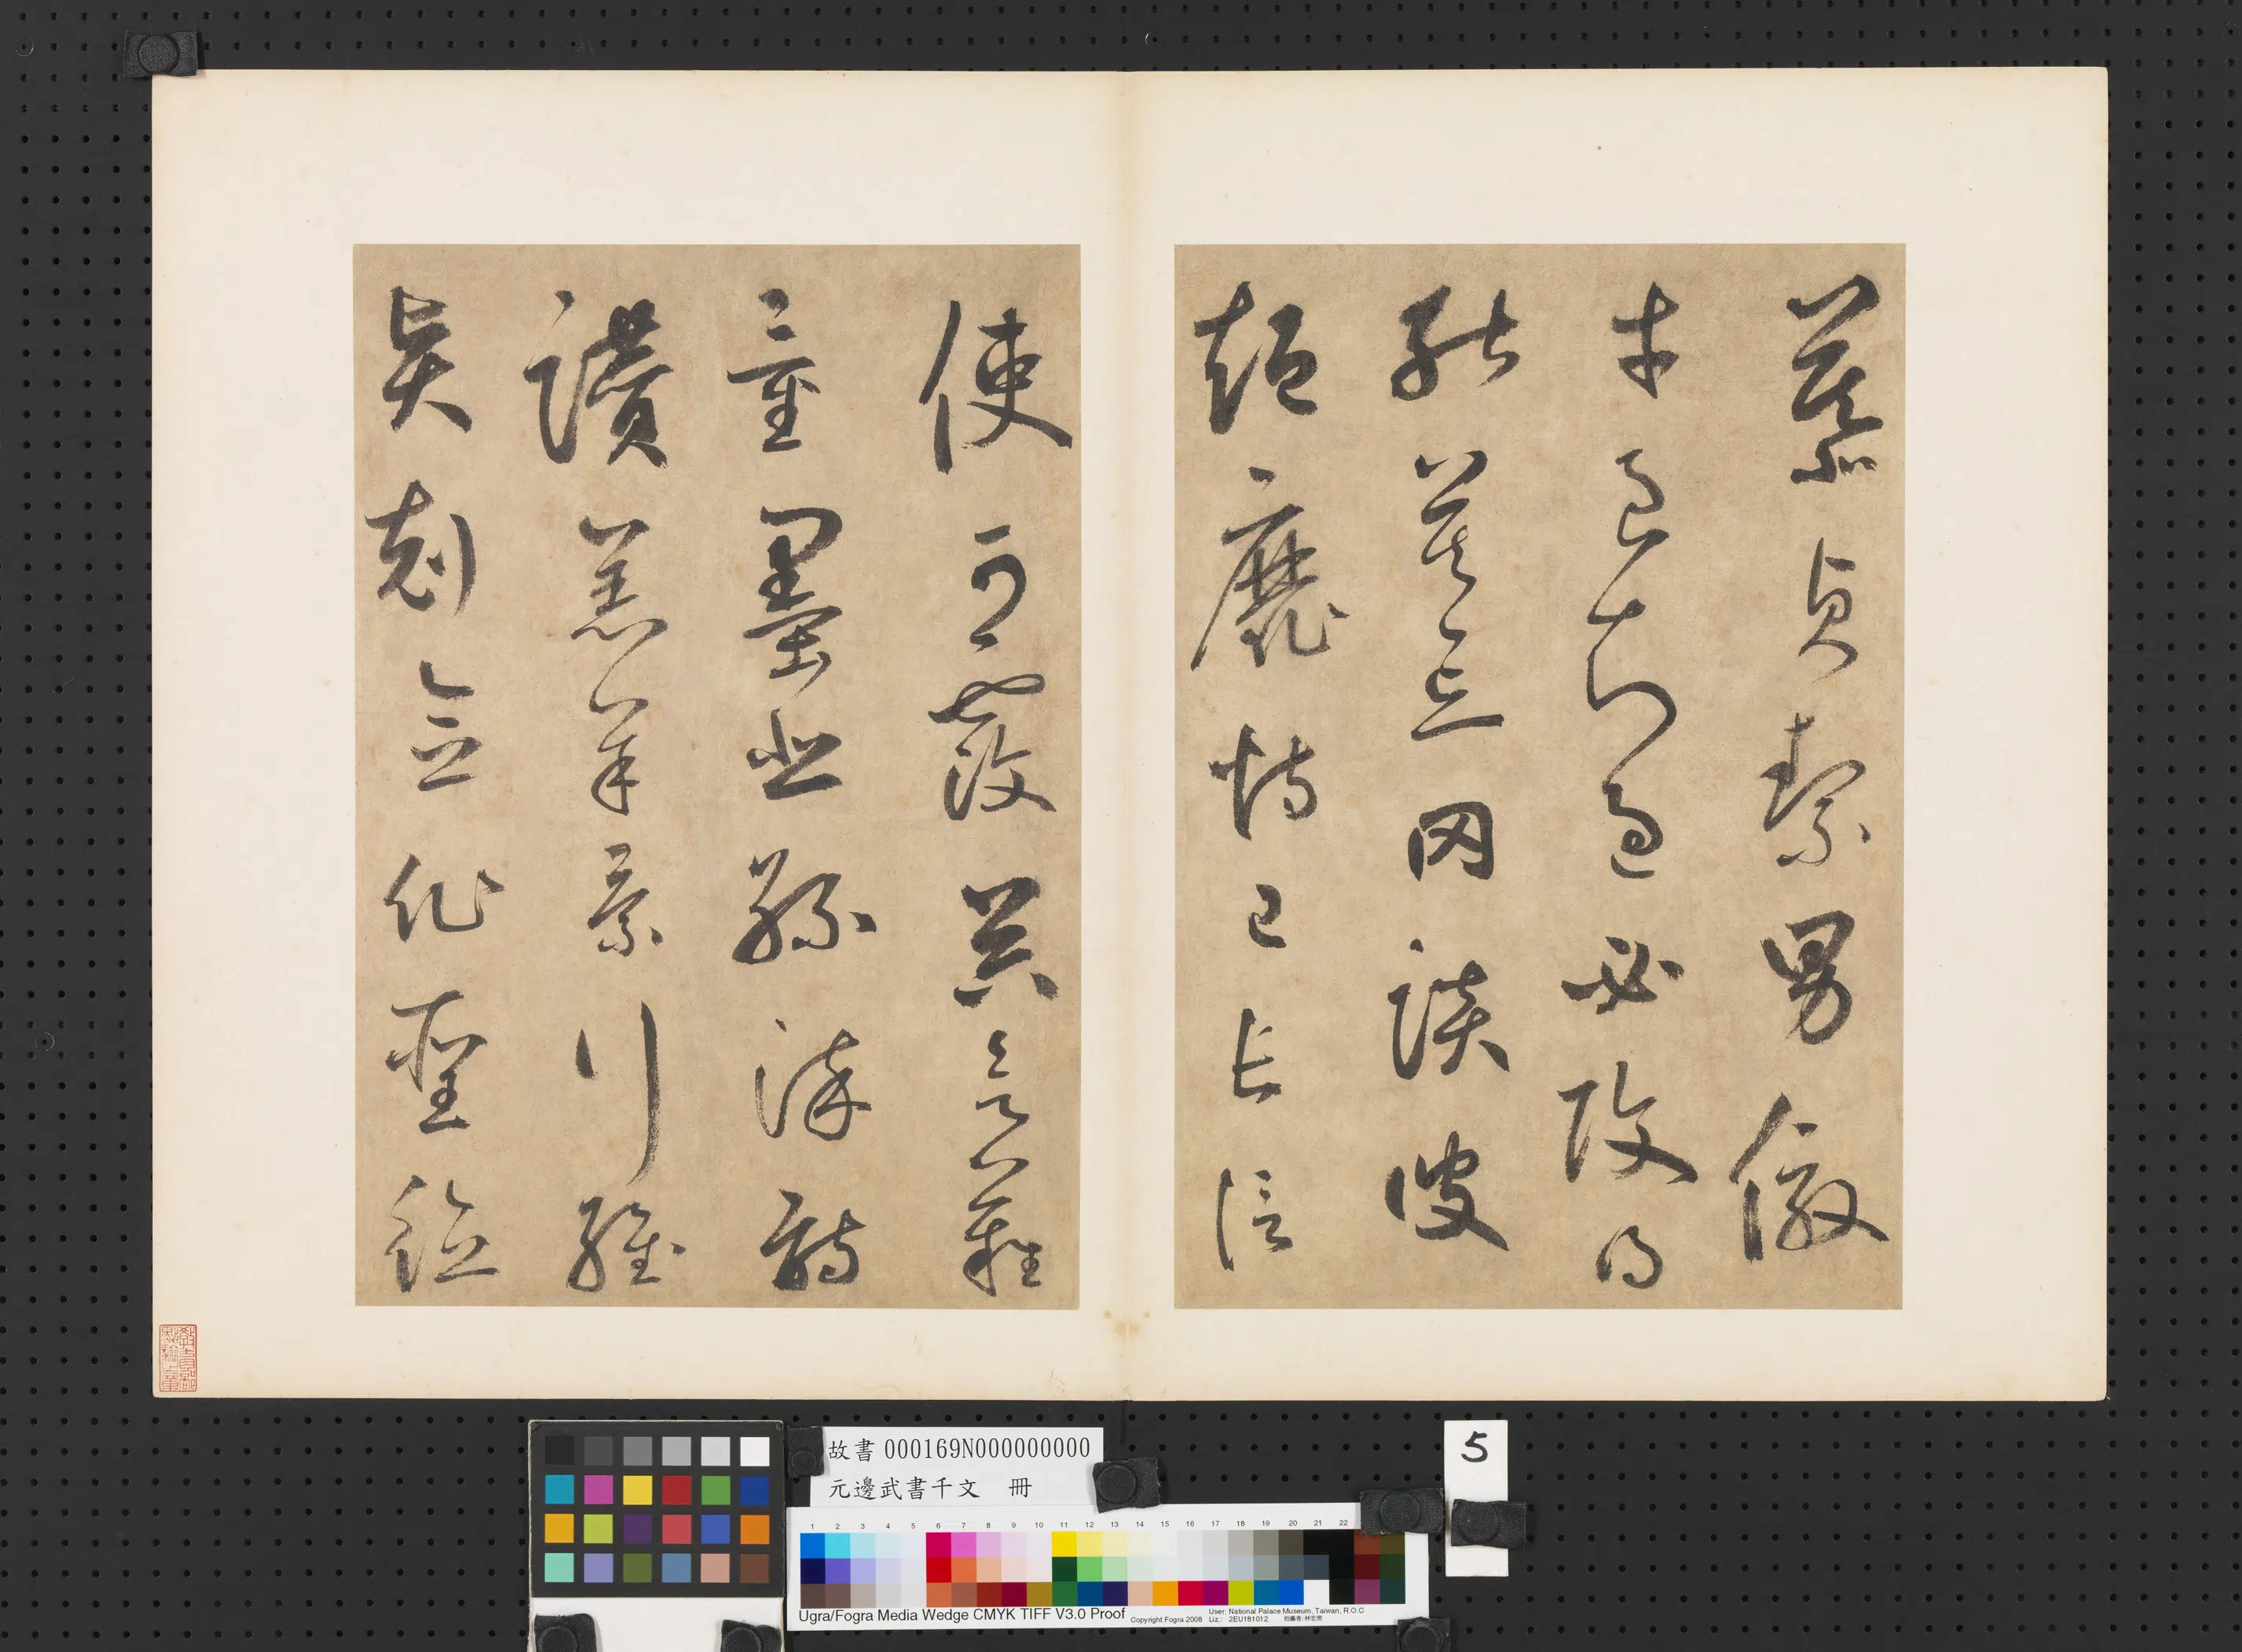 慕貞絜男傚
才良知過必改得
能莫忘罔談彼
短靡恃己長信
使可覆器欲難
量墨悲絲染詩
讚羔羊景行維
賢剋念作聖德
故書 000169N000000000
元邊武書千文 冊
5
1 2 3 4 5 6 7 8 9 10 11 12 13 14 15 16 17 18 19 20 21 22
Ugra/Fogra Media Wedge CMYK TIFF V3.0 Proof
Copyright Fogra 2008
User: National Palace Museum, Taiwan, R.O.C
Liz.: 2EU181012